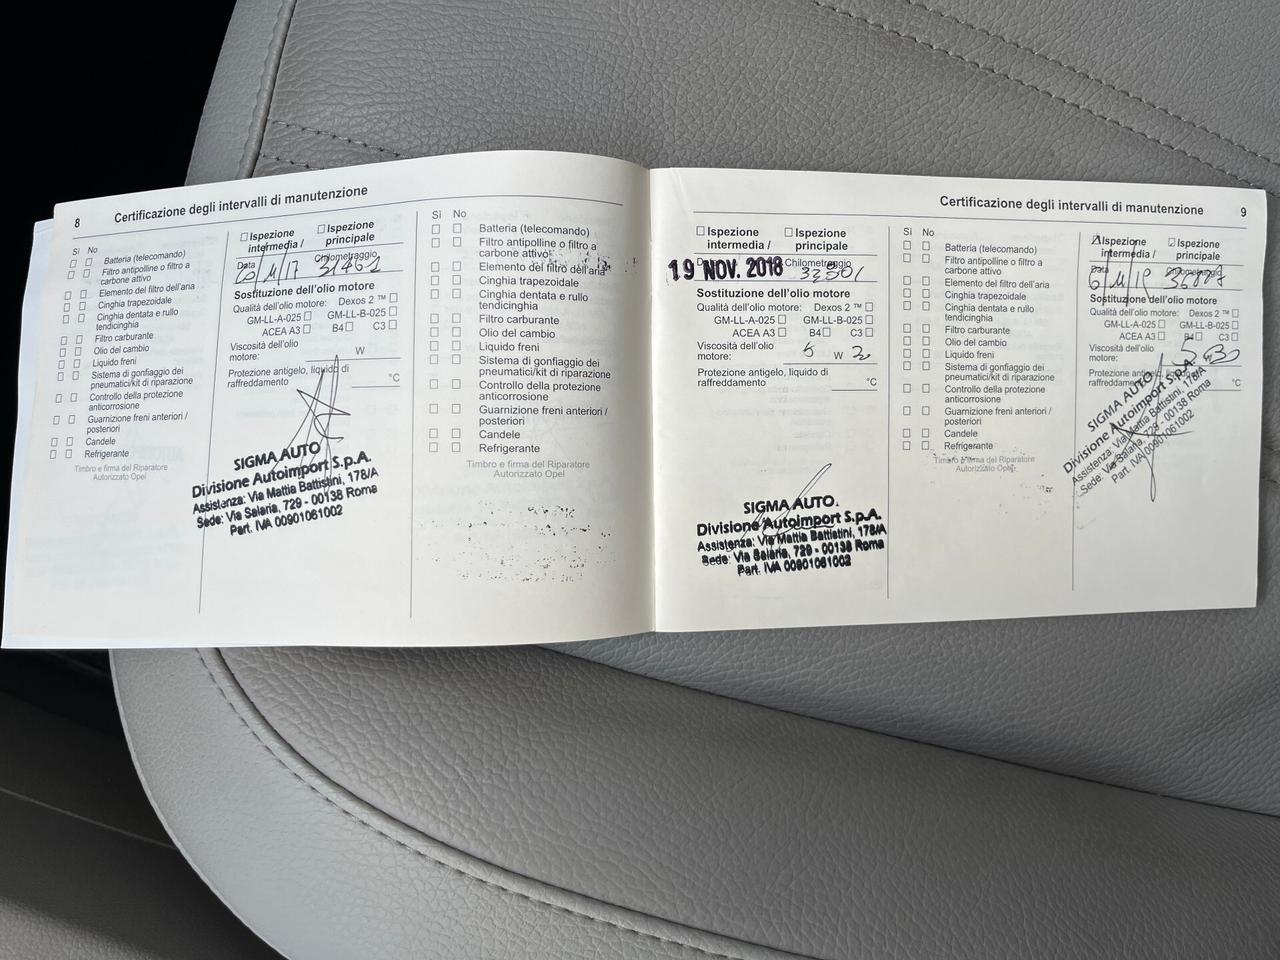 8 Certificazione degli intervalli di manutenzione
Sì No
Batteria (telecomando)
Filtro antipolline o filtro a
carbone attivo
Elemento del filtro dell'aria
Cinghia trapezoidale
Cinghia dentata e rullo
tendicinghia
Filtro carburante
Olio del cambio
Liquido freni
Sistema di gonfiaggio dei
pneumatici/kit di riparazione
Controllo della protezione
anticorrosione
Guarnizione freni anteriori /
posteriori
Candele
Refrigerante
Timbro e firma del Riparatore
Autorizzato Opel
Ispezione
intermedia /
Ispezione
principale
Data Chilometraggio
6/11/17
Sostituzione dell'olio motore
Qualità dell'olio motore: Dexos 2 ™
GM-LL-A-025 GM-LL-B-025
ACEA A3 B4 C3
Viscosità dell'olio
motore: W
Protezione antigelo, liquido di
raffreddamento °C
SIGMA AUTO
Divisione Autoimport S.p.A.
Assistenza: Via Mattia Battistini, 178/A
Sede: Via Salaria, 729 - 00138 Roma
Part. IVA 00901061002
Sì No
Batteria (telecomando)
Filtro antipolline o filtro a
carbone attivo
Elemento del filtro dell'aria
Cinghia trapezoidale
Cinghia dentata e rullo
tendicinghia
Filtro carburante
Olio del cambio
Liquido freni
Sistema di gonfiaggio dei
pneumatici/kit di riparazione
Controllo della protezione
anticorrosione
Guarnizione freni anteriori /
posteriori
Candele
Refrigerante
Timbro e firma del Riparatore
Autorizzato Opel
Certificazione degli intervalli di manutenzione 9
Ispezione
intermedia /
Ispezione
principale
Chilometraggio
19 NOV. 2018
Sostituzione dell'olio motore
Qualità dell'olio motore: Dexos 2 ™
GM-LL-A-025 GM-LL-B-025
ACEA A3 B4 C3
Viscosità dell'olio
motore: 5 W 30
Protezione antigelo, liquido di
raffreddamento °C
SIGMA AUTO
Divisione Autoimport S.p.A.
Assistenza: Via Mattia Battistini, 178/A
Sede: Via Salaria, 729 - 00138 Roma
Part. IVA 00901061002
Sì No
Batteria (telecomando)
Filtro antipolline o filtro a
carbone attivo
Elemento del filtro dell'aria
Cinghia trapezoidale
Cinghia dentata e rullo
tendicinghia
Filtro carburante
Olio del cambio
Liquido freni
Sistema di gonfiaggio dei
pneumatici/kit di riparazione
Controllo della protezione
anticorrosione
Guarnizione freni anteriori /
posteriori
Candele
Refrigerante
Timbro e firma del Riparatore
Autorizzato Opel
Ispezione
intermedia /
Ispezione
principale
Data Chilometraggio
6/11/19
Sostituzione dell'olio motore
Qualità dell'olio motore: Dexos 2 ™
GM-LL-A-025 GM-LL-B-025
ACEA A3 B4 C3
Viscosità dell'olio
motore: 5 W 30
Protezione antigelo, liquido di
raffreddamento °C
SIGMA AUTO
Divisione Autoimport S.p.A.
Assistenza: Via Mattia Battistini, 178/A
Sede: Via Salaria, 729 - 00138 Roma
Part. IVA 00901061002